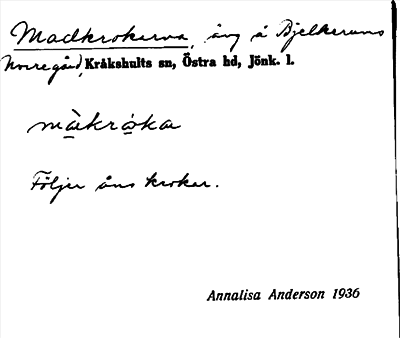 Madkrokarna, äng å Bjelkerums
Norregård, Kråkshults sn, Östra hd, Jönk. l.
màkrȯka
Följer åns krokar.
Annalisa Anderson 1936